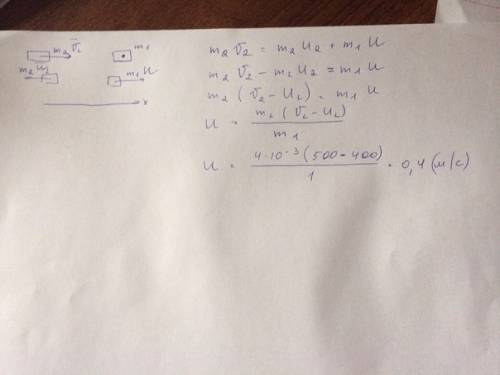 m₂ v̄₂ m₁
m₂ u₂ m₁ u
x
m₂ v̄₂ = m₂ u₂ + m₁ u
m₂ v̄₂ - m₂ u₂ = m₁ u
m₂ ( v̄₂ - u₂ ) = m₁ u
u = m₂ ( v̄₂ - u₂ ) / m₁
u = 4·10⁻³ (500-400) / 1 = 0,4 (м/с)